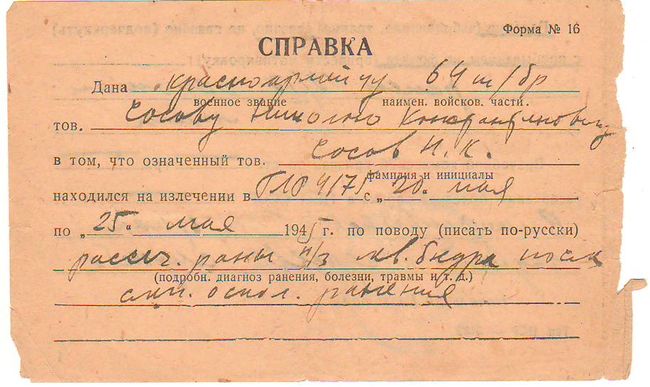 Форма № 16
СПРАВКА
Дана красноармейцу 64 ш/бр
военное звание наимен. войсков. части.
тов. Сосову Николаю Константиновичу
в том, что означенный тов. Сосов Н. К.
фамилия и инициалы
находился на излечении в ГЛР 4175 с „20. мая
по „25. мая 1945 г. по поводу (писать по-русски)
рассеч. раны н/з лев. бедра после
(подробн. диагноз ранения, болезни, травмы и т. д.)
слп. оскол. ранения